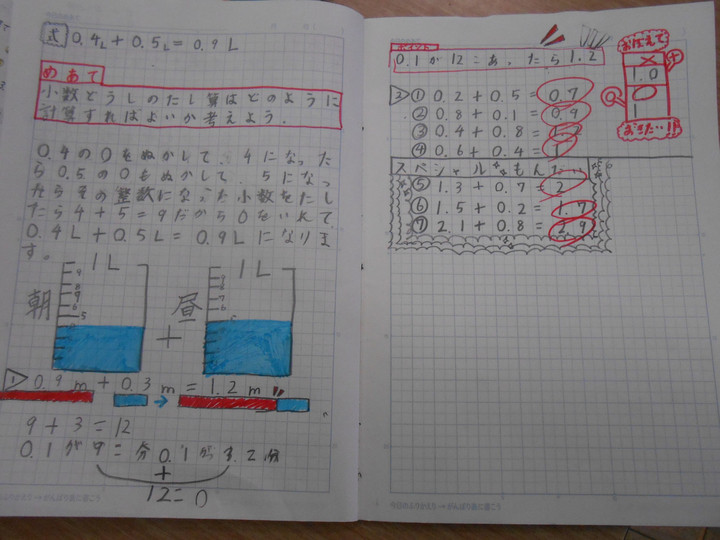 式 0.4L+0.5L=0.9L
めあて
小数どうしのたし算はどのように
計算すればよいか考えよう.
0.4の0をぬかして、4になった
ら0.5の0をぬかして、5になっ
たらその整数になった小数をたし
たら4+5=9だから0をいれて
0.4L+0.5L=0.9Lになりま
す。
1L
1L
朝
+
昼
1 0.9m+0.3m=1.2m
9+3=12
0.1が9こ分0.1が
+
12=0
ポイント
0.1が12こあったら1.2
2 ① 0.2+0.5=0.7
② 0.8+0.1=0.9
③ 0.4+0.8=1.2
④ 0.6+0.4=1
スペシャルもんだい
⑤ 1.3+0.7=2
⑥ 1.5+0.2=1.7
⑦ 2.1+0.8=2.9
おぼえて
1.0
1